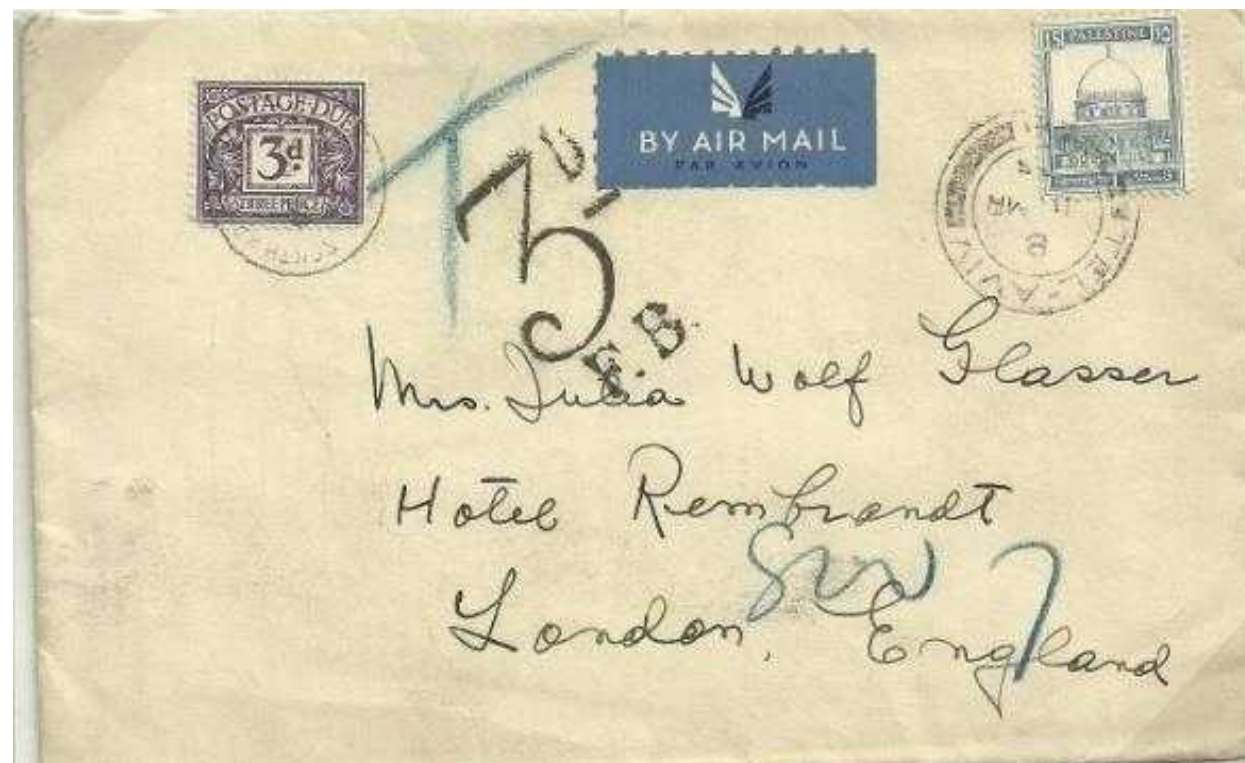 POSTAGE DUE
3d.
THREE PENCE
T
3D
F.B.
BY AIR MAIL
PAR AVION
15 PALESTINE 15
TEL-AVIV
8
Mrs. Julia Wolf Glasser
Hotel Rembrandt
SW 7
London, England